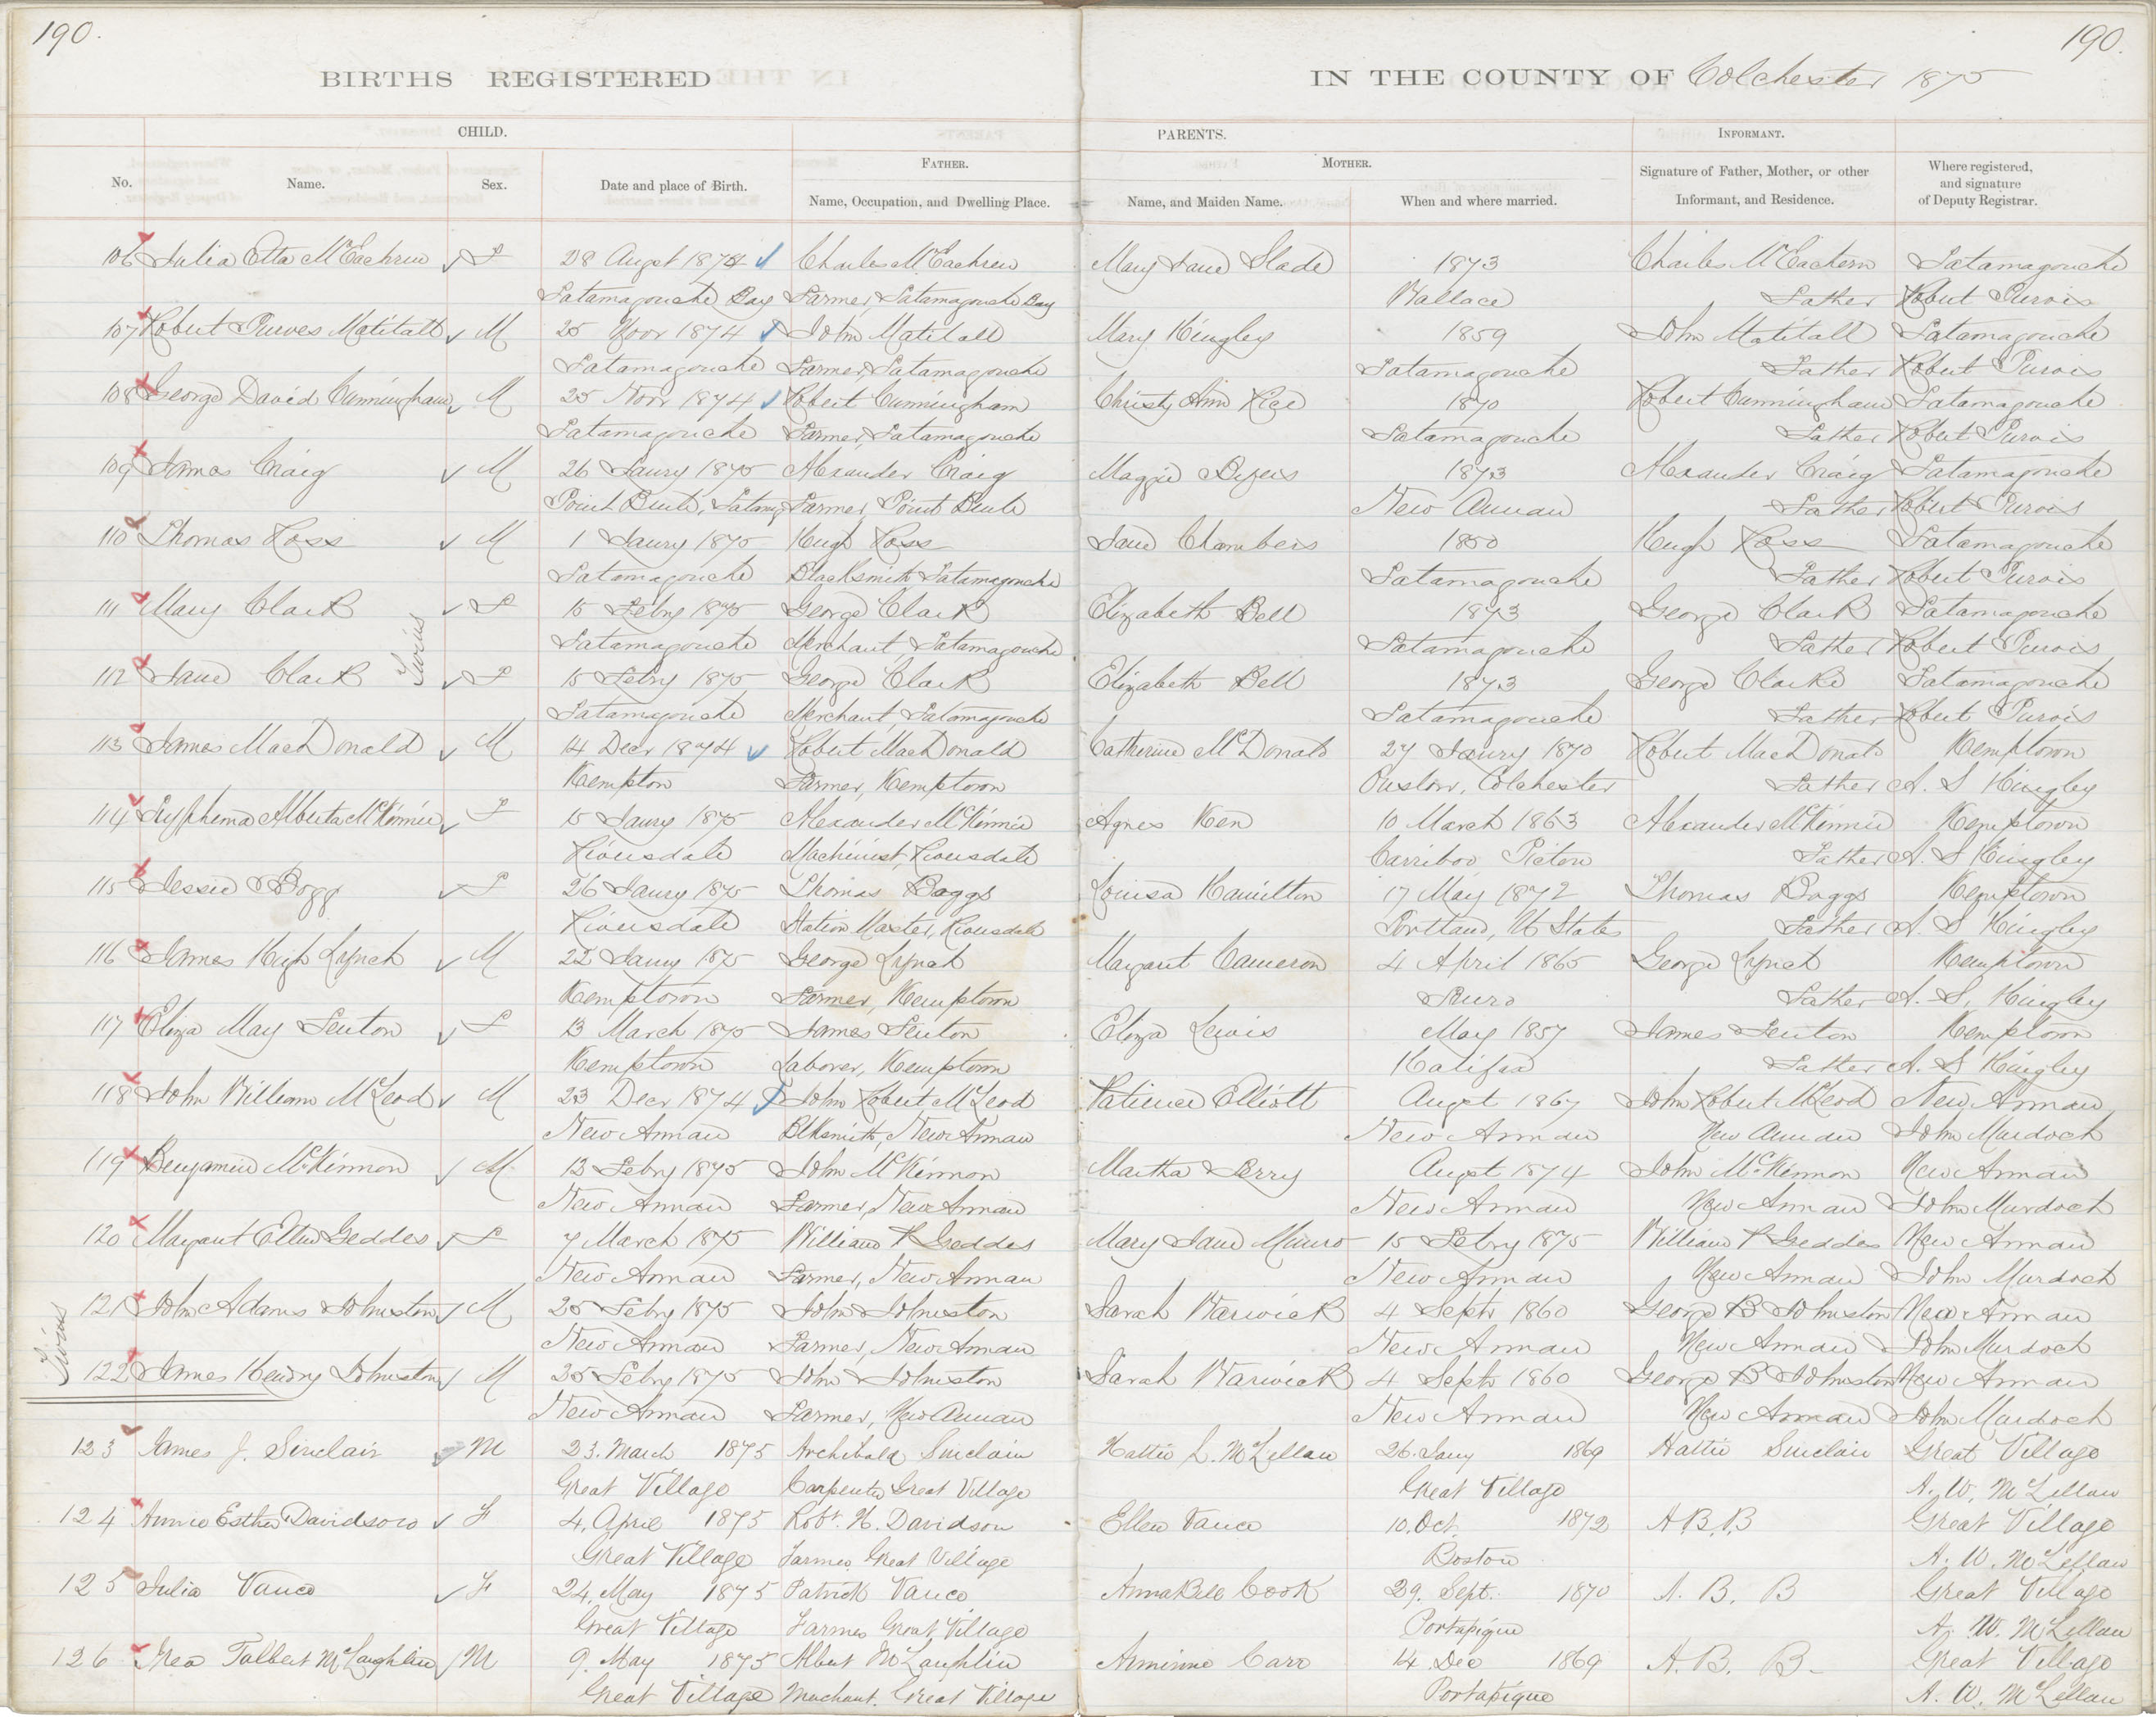 190.
190.
BIRTHS REGISTERED
IN THE COUNTY OF Colchester 1875
CHILD.
PARENTS.
INFORMANT.
FATHER.
MOTHER.
No.
Name.
Sex.
Date and place of Birth.
Name, Occupation, and Dwelling Place.
Name, and Maiden Name.
When and where married.
Signature of Father, Mother, or other
Informant, and Residence.
Where registered,
and signature
of Deputy Registrar.
106 Julia Etta McEachren F 28 Augst 1874 Charles McEachren Mary Jane Slade 1873 Charles McEachern Tatamagouche
Tatamagouche Bay Farmer, Tatamagouche Bay Wallace Father Robert Purvis
107 Robert Purves Matitall M 25 Novr 1874 John Matitall Mary Kingley 1859 John Matitall Tatamagouche
Tatamagouche Farmer, Tatamagouche Tatamagouche Father Robert Purvis
108 George David Cunningham M 25 Novr 1874 Robert Cunningham Christy Ann Rice 1870 Robert Cunningham Tatamagouche
Tatamagouche Farmer, Tatamagouche Tatamagouche Father Robert Purvis
109 James Craig M 26 Jaury 1875 Alexander Craig Maggie 1873 Alexander Craig Tatamagouche
Point Brule, Tatamg Farmer, Point Brule New Annan Father Robert Purvis
110 Thomas Ross M 1 Jaury 1875 Hugh Ross Jane Chambers 1850 Hugh Ross Tatamagouche
Tatamagouche Blacksmith Tatamagouche Tatamagouche Father Robert Purvis
111 Mary Clark F 15 Febry 1875 George Clark Elizabeth Bell 1873 George Clark Tatamagouche
Twins
Tatamagouche Merchant, Tatamagouche Tatamagouche Father Robert Purvis
112 Jane Clark F 15 Febry 1875 George Clark Elizabeth Bell 1873 George Clarke Tatamagouche
Tatamagouche Merchant, Tatamagouche Tatamagouche Father Robert Purvis
113 James MacDonald M 14 Decr 1874 Robert MacDonald Catherine McDonald 27 Jaury 1870 Robert MacDonald Kemptown
Kempton Farmer, Kemptown Onslow, Colchester Father A. S Kingley
114 Euphemia Alberta McKinnie F 15 Jaury 1875 Alexander McKinnie Agnes Ken 10 March 1863 Alexander McKinnie Kemptown
Riversdale Machinist, Riversdale Carriboo Picton Father A. S Kingley
115 Jessie Bogg F 26 Jaury 1875 Thomas Boggs Louisa Hamilton 17 May 1872 Thomas Boggs Kemptown
Riversdale Station Master, Riversdale Portland, U States Father A. S Kingley
116 James Hugh Lynch M 22 Jaury 1875 George Lynch Margaret Cameron 4 April 1865 George Lynch Kemptown
Kemptown Farmer, Kemptown Truro Father A. S. Kingley
117 Eliza May Fenton F 13 March 1875 James Fenton Eliza Lewis May 1857 James Fenton Kemptown
Kemptown Laborer, Kemptown Halifax Father A. S Kingley
118 John William McLeod M 23 Decr 1874 John Robert McLeod Patience Elliott Augst 1867 John Robert McLeod New Annan
New Annan Blksmith, New Annan New Annan New Annan John Murdoch
119 Benjamin McKinnon M 13 Febry 1875 John McKinnon Martha Perry Augst 1874 John McKinnon New Annan
New Annan Farmer, New Annan New Annan New Annan John Murdoch
120 Margaret Ellen Geddes F 7 March 1875 William P Geddes Mary Jane Munro 15 Febry 1875 William P Geddes New Annan
New Annan Farmer, New Annan New Annan New Annan John Murdoch
121 John Adams Johnston M 25 Febry 1875 John Johnston Sarah Warwick 4 Septr 1860 George B Johnston New Annan
Twins
New Annan Farmer, New Annan New Annan New Annan John Murdoch
122 James Henry Johnston M 25 Febry 1875 John Johnston Sarah Warwick 4 Septr 1860 George B Johnston New Annan
New Annan Farmer, New Annan New Annan New Annan John Murdoch
123 James J. Sinclair M 23. March 1875 Archibald Sinclair Hattie L. McLellan 26. Jany 1869 Hattie Sinclair Great Village
Great Village Carpenter Great Village Great Village A. W. McLellan
124 Annie Esther Davidson F 4. April 1875 Robt. H. Davidson Ellen Vance 10. Oct. 1872 A B. B Great Village
Great Village Farmer Great Village Boston A. W. McLellan
125 Julia Vance F 24. May 1875 Patrick Vance Annabell Cook 29. Sept. 1870 A. B. B Great Village
Great Village Farmer Great Village Portapique A. W. McLellan
126 Talbert McLaughlin M 9. May 1875 Albert McLaughlin Arminne Carr 14. Dec 1869 A. B. B. Great Village
Great Village Merchant. Great Village Portapique A. W. McLellan